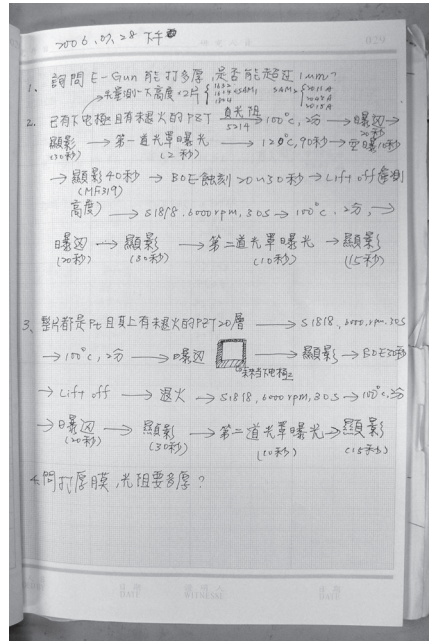 2006.09.28 下午
029
1. 詢問E-Gun能打多厚,是否能超過1um?
先量測一下高度×2片
2. 已有下電極且有未退火的PZT 負光阻 5214 → 100°C, 2分 → 曝邊 20秒 →
顯影 (30秒) → 第一道光罩曝光 (2秒) → 120°C, 90秒 → 空曝10秒
→ 顯影40秒 (MF319) → BOE蝕刻20~30秒 → Lift off (量測
高度) → S1818, 6000rpm, 30S → 100°C, 2分, →
曝邊 (20秒) → 顯影 (30秒) → 第二道光罩曝光 (10秒) → 顯影 (15秒)
3. 整片都是Pt且其上有未退火的PZT20層 → S1818, 6000rpm, 30S
→ 100°C, 2分 → 曝邊 → 顯影 → BOE30秒
來當下電極
→ Lift off → 退火 → S1818, 6000rpm, 30S → 100°C, 2分
→ 曝邊 (20秒) → 顯影 (30秒) → 第二道光罩曝光 (10秒) → 顯影 (15秒)
4. 問打厚膜,光阻要多厚?
DATE
WITNESS
DATE